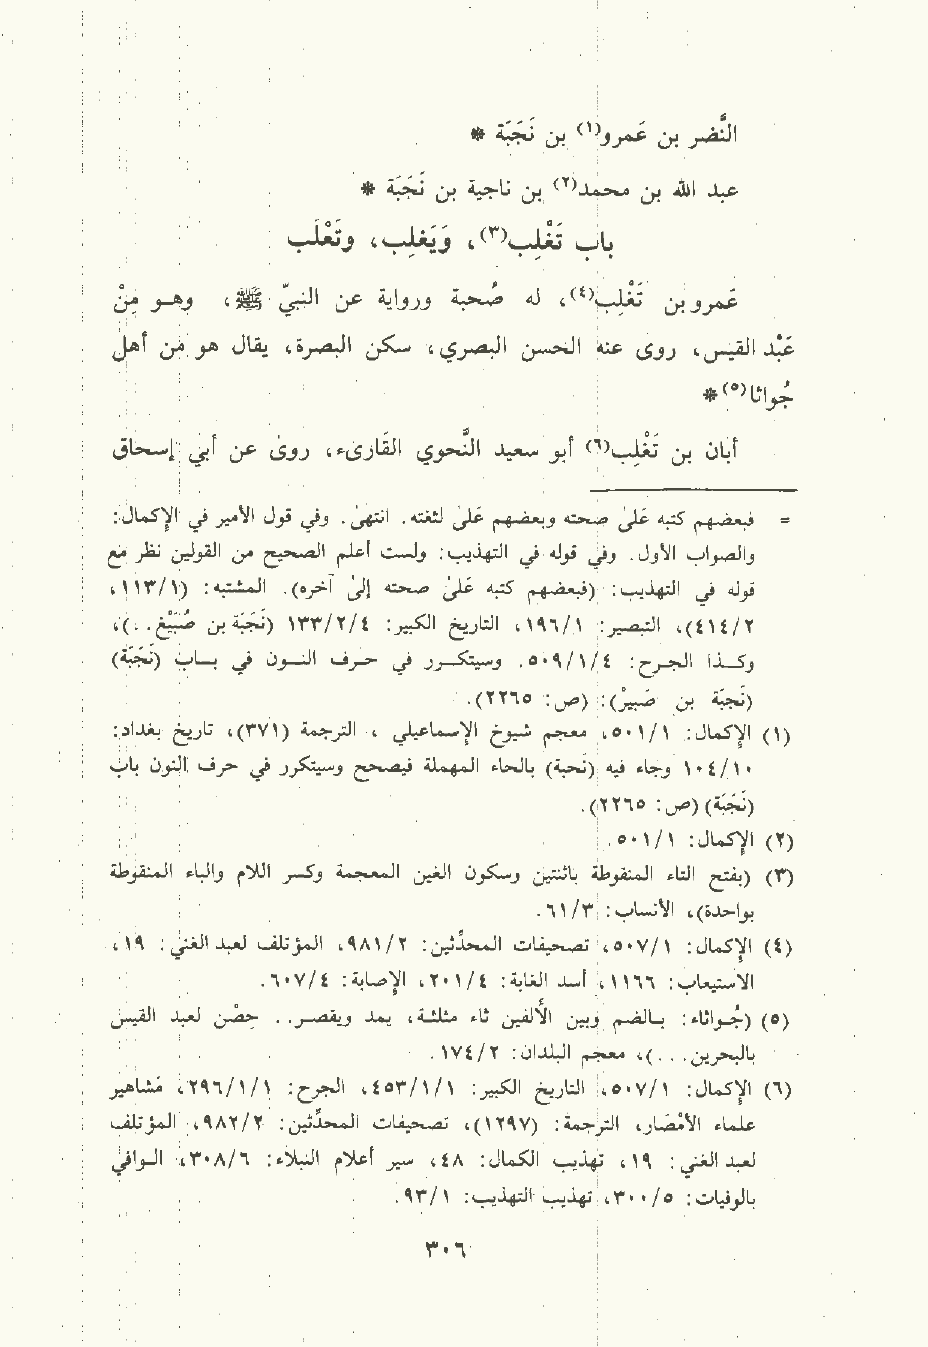 النَّضر بن عَمرو(١) بن نَجَبَة *
عبد الله بن محمد(٢) بن ناجية بن نَجَبَة *
باب تَغْلِب(٣)، وَيَغلِب، وتَعْلَب
عَمرو بن تَغْلِب(٤)، له صُحبَة ورواية عن النبيّ ﷺ، وهو مِنْ
عَبْد القيس، روى عنه الحسن البصري، سكن البصرة، يقال هو من أهل
جُواثا(٥) *
أبان بن تَغْلِب(٦) أبو سعيد النَّحوي القَارىء، روىٰ عن أبي إسحاق
= فبعضهم كتبه علىٰ صحته وبعضهم علىٰ لثغته. انتهىٰ. وفي قول الأمير في الإكمال:
والصواب الأول. وفي قوله في التهذيب: ولست أعلم الصحيح من القولين نظر مع
قوله في التهذيب: (فبعضهم كتبه علىٰ صحته إلىٰ آخره). المشتبه: (١١٣/١،
٤١٤/٢)، التبصير: ١٩٦/١، التاريخ الكبير: ١٣٣/٢/٤ (نَجَبَة بن صُبَيْغ..)،
وكذا الجرح: ٥٠٩/١/٤. وسيتكرر في حرف النون في باب (نَجَبَة)
(نَجَبَة بن صَبِيْر): (ص: ٢٢٦٥).
(١) الإكمال: ٥٠١/١، معجم شيوخ الإسماعيلي، الترجمة (٣٧١)، تاريخ بغداد:
١٠٤/١٠ وجاء فيه (نَحبة) بالحاء المهملة فيصحح وسيتكرر في حرف النون باب
(نَجَبَة) (ص: ٢٢٦٥).
(٢) الإكمال: ٥٠١/١.
(٣) (بفتح التاء المنقوطة باثنتين وسكون الغين المعجمة وكسر اللام والباء المنقوطة
بواحدة)، الأنساب: ٦١/٣.
(٤) الإكمال: ٥٠٧/١، تصحيفات المحدِّثين: ٩٨١/٢، المؤتلف لعبد الغني: ١٩،
الاستيعاب: ١١٦٦، أسد الغابة: ٢٠١/٤، الإصابة: ٦٠٧/٤.
(٥) (جُواثاء: بالضم وبين الألفين ثاء مثلثة، يمد ويقصر.. حصْن لعبد القيس
بالبحرين...)، معجم البلدان: ١٧٤/٢.
(٦) الإكمال: ٥٠٧/١، التاريخ الكبير: ٤٥٣/١/١، الجرح: ٢٩٦/١/١، مَشاهير
علماء الأمْصَار، الترجمة: (١٢٩٧)، تصحيفات المحدِّثين: ٩٨٢/٢، المؤتلف
لعبد الغني: ١٩، تهذيب الكمال: ٤٨، سير أعلام النبلاء: ٣٠٨/٦، الوافي
بالوفيات: ٣٠٠/٥، تهذيب التهذيب: ٩٣/١.
٣٠٦